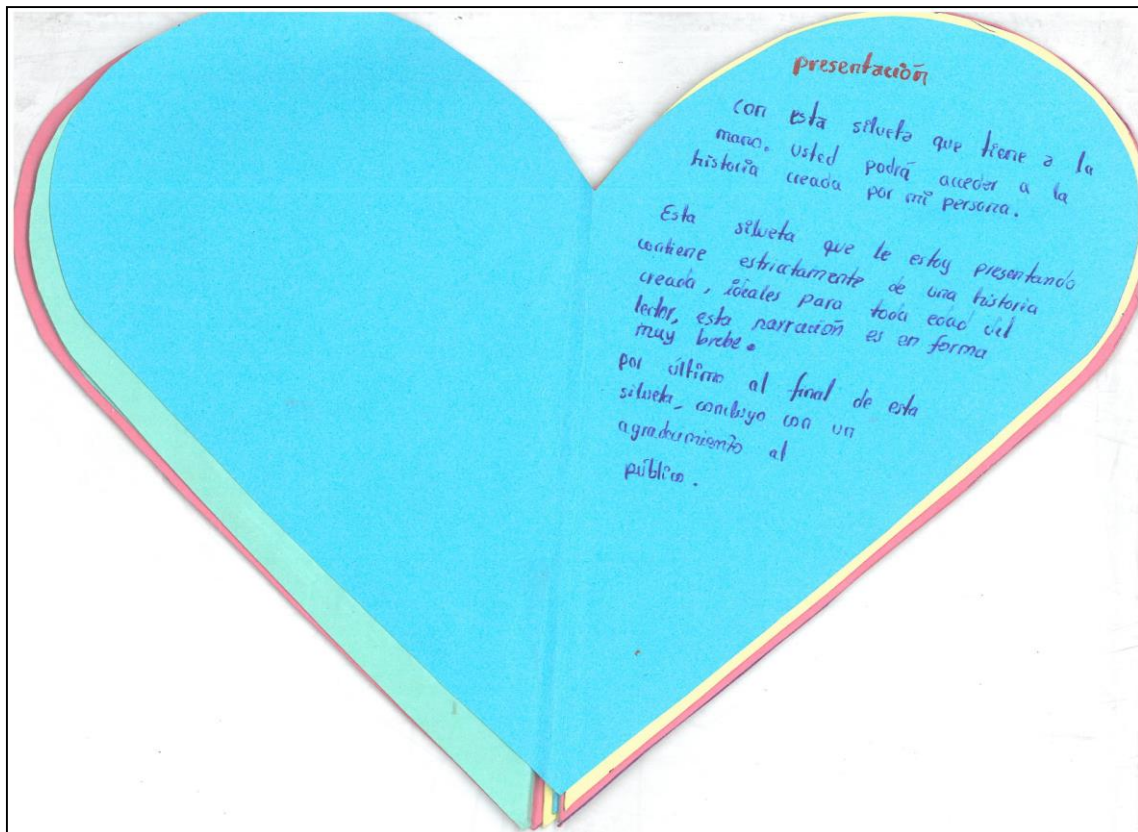 presentación
con esta silueta que tiene a la
mano, usted podrá acceder a la
historia creada por mi persona.
Esta silueta que le estoy presentando
contiene estrictamente de una historia
creada, ideales para toda edad del
lector, esta narración es en forma
muy brebe.
por último al final de esta
silueta, concluyo con un
agradecimiento al
público.